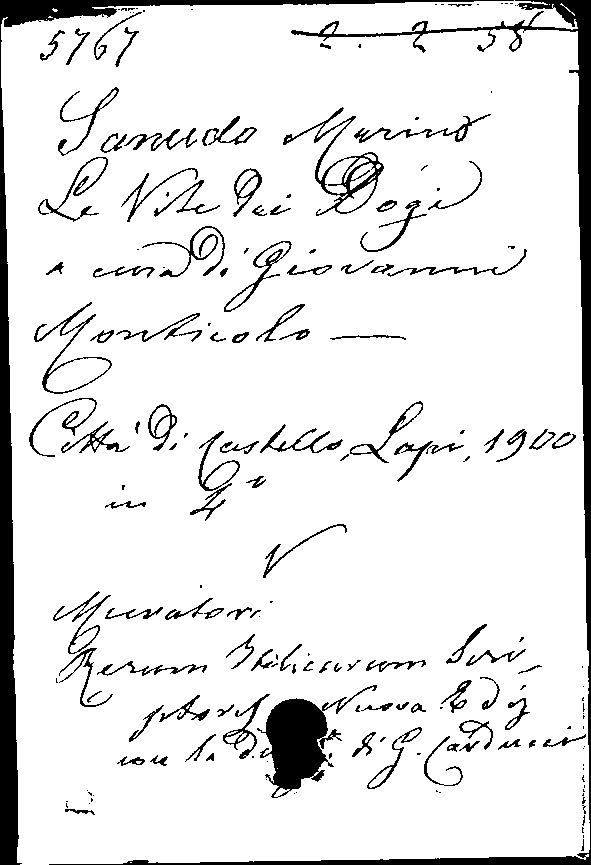 5767 2. 2 58
Sanudo Marino
Le Vite dei Dogi
a cura di Giovanni
Monticolo —
Città di Castello, Lapi, 1900
in 4°
V
Muratori
Rerum Italicarum Scri-
ptores Nuova Ediz
con la di G. Carducci